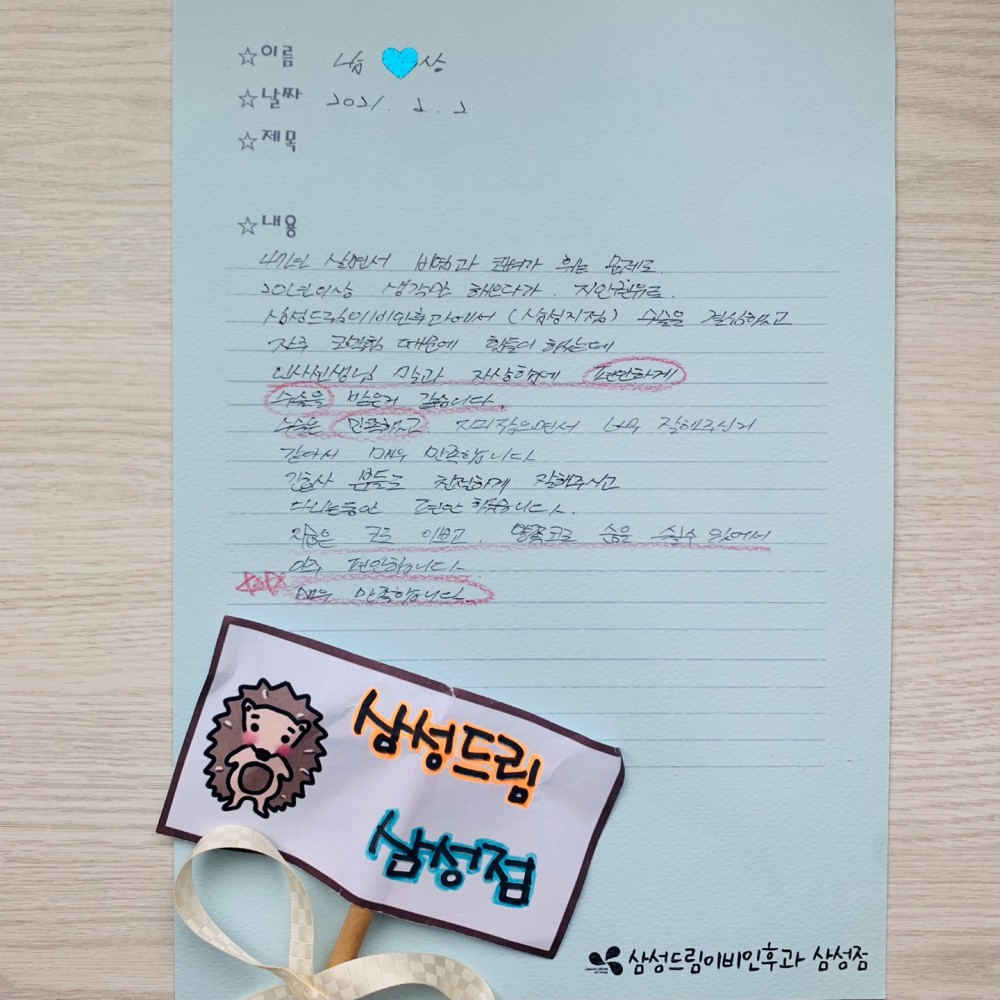 ☆이름 남 상
☆날짜 2021. 2. 2
☆제목
☆내용
47년 살면서 비염과 코뼈가 휘는 문제로
20년이상 생각만 해오다가. 지인권유로.
삼성드림이비인후과에서 (삼성지점) 수술을 결심하고
자주 코막힘 때문에 힘들어 했는데
의사선생님 말과 자상함에 편안하게
수술을 받은거 같습니다.
수술은 만족하고 너무 잘해주신거
같아서 매우 만족합니다
간호사 분들도 친절하게 잘해주시고
다니는동안 편안 했습니다.
지금은 코도 이쁘고. 양쪽코로 숨을 쉴수 있어서
아주 편안합니다.
매우 만족합니다.
삼성드림
삼성점
삼성드림이비인후과 삼성점